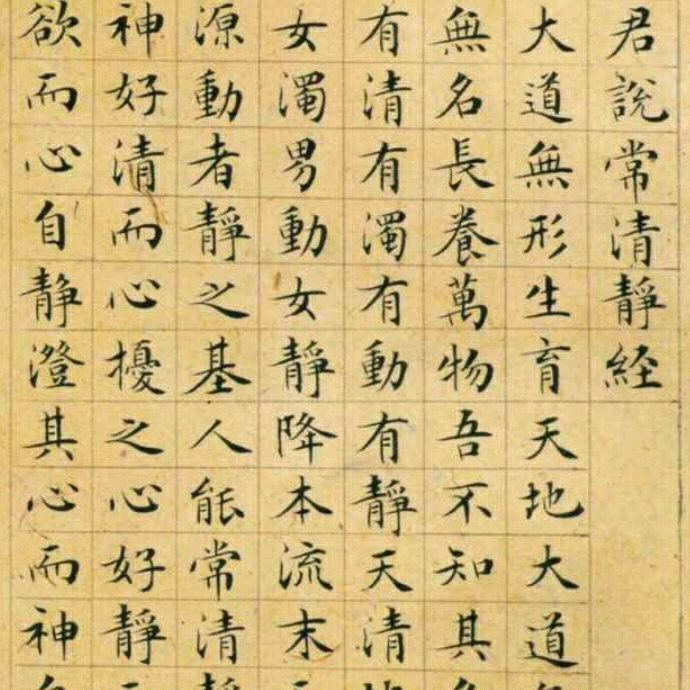 君說常清靜経
大道無形生育天地大道
無名長養萬物吾不知其
有清有濁有動有靜天清
女濁男動女靜降本流末
源動者靜之基人能常清
神好清而心擾之心好靜
欲而心自静澄其心而神